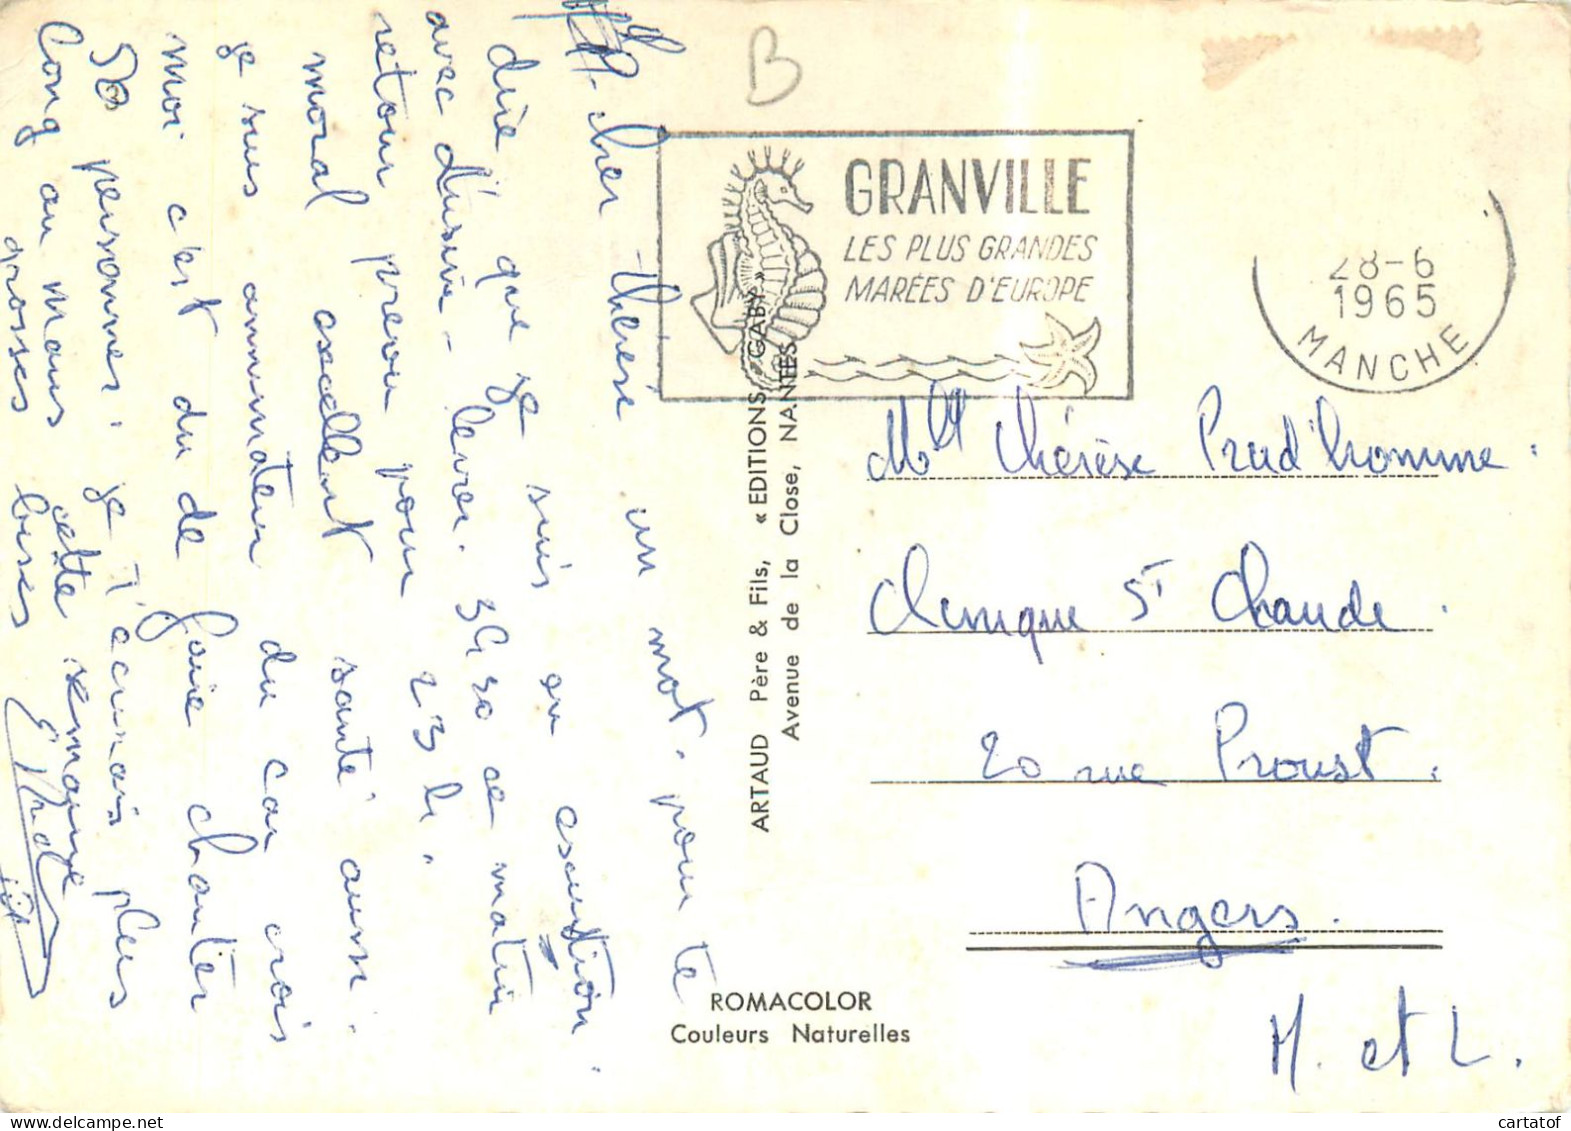 B
GRANVILLE
LES PLUS GRANDES
MARÉES D'EUROPE
28-6
1965
MANCHE
Chère Thérèse un mot. pour te
dire que je suis en excurtion.
avec d'usine - lever. 3H30 ce matin
retour prévu pour 23 h.
moral excellent santé aussi.
je suis annimateur du car crois
moi c'est du de faire chanter
50 personnes. je t'écrirais plus
long au moins cette semaine
grosses bises
ARTAUD Père & Fils, « EDITIONS GABY »
Avenue de la Close, NANTES
Mlle Thérèse Prud'homme.
Clinique St Claude.
20 rue Proust.
Angers.
M. et L.
ROMACOLOR
Couleurs Naturelles
cartatof